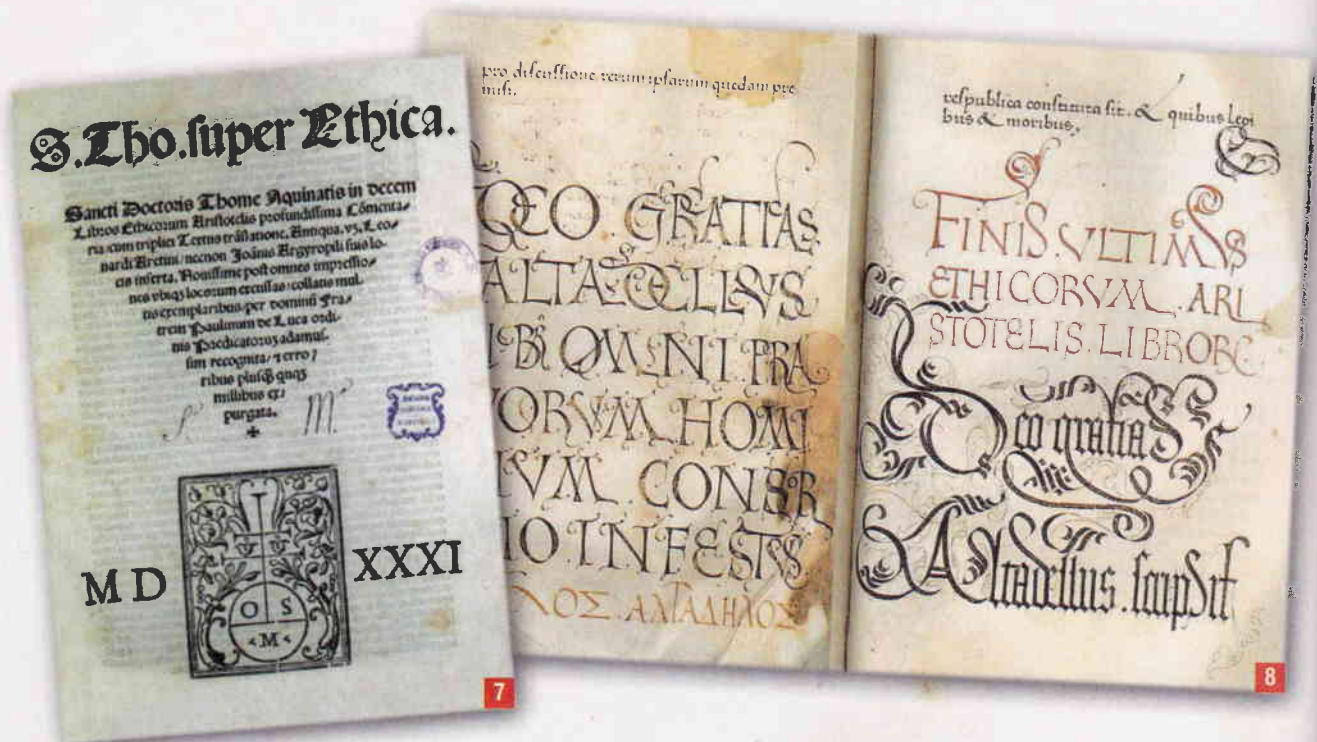 S. Tho. super Ethica.
Sancti Doctoris Thome Aquinatis in decem
Libros Ethicorum Aristotelis profundissima Cōmenta-
ria: cum triplici Textus trāslatione, Antiqua, vz, Leo-
nardi Aretini: necnon Joānis Argyropili suis lo-
cis inserta. Nouissime post omnes impressio-
nes vbiqȝ locorum excussas: collatis mul-
tis exemplaribus: per dominū Fra-
trem Paulinum de Luca ordi-
nis Predicatorū adamus-
sim recognita: 
ribus
millibus ex-
purgata.
M D XXXI
O S
M
7
pro discussione rerum ipsarum quedam pre
misi.
DEO GRATIAS
ALTADELLVS
IBI OMNI PRA
VORVM HOMI
NVM CONSR
IO INFESTVS
ΛΟΣ ΑΛΤΑΔΗΛΟΣ
respublica constituta sit. & quibus legi
bus & moribus,
FINIS VLTIMVS
ETHICORVM . ARI
STOTELIS . LIBRORV
Deo gratias
Altadellus . scripsit
8